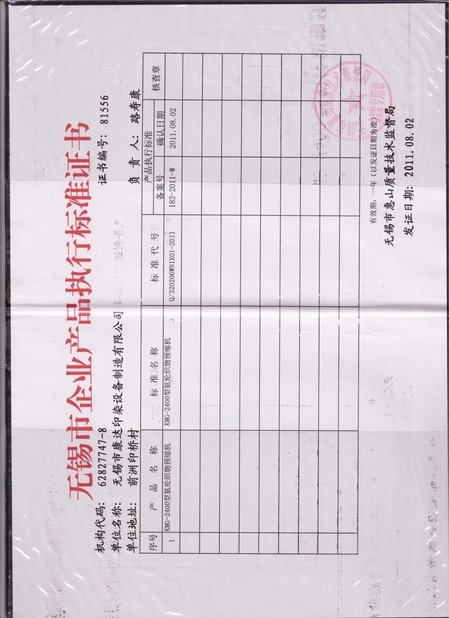 无锡市企业产品执行标准证书
证书编号: 81556
机构代码: 62827747-8
单位名称: 无锡市康达印染设备制造有限公司
负责人: 路寿康
单位地址: 前洲印桥村
序号 产品名称 标准名称 标准代号 产品执行标准 核查章
备案号 确认日期
1 KMG-2400型氨纶织物预缩机 KMG-2400型氨纶织物预缩机 Q/320206WNIX01-2011 182-2011-W 2011.08.02
有效期:一年(以发证日期为准)
无锡市惠山质量技术监督局
发证日期: 2011.08.02